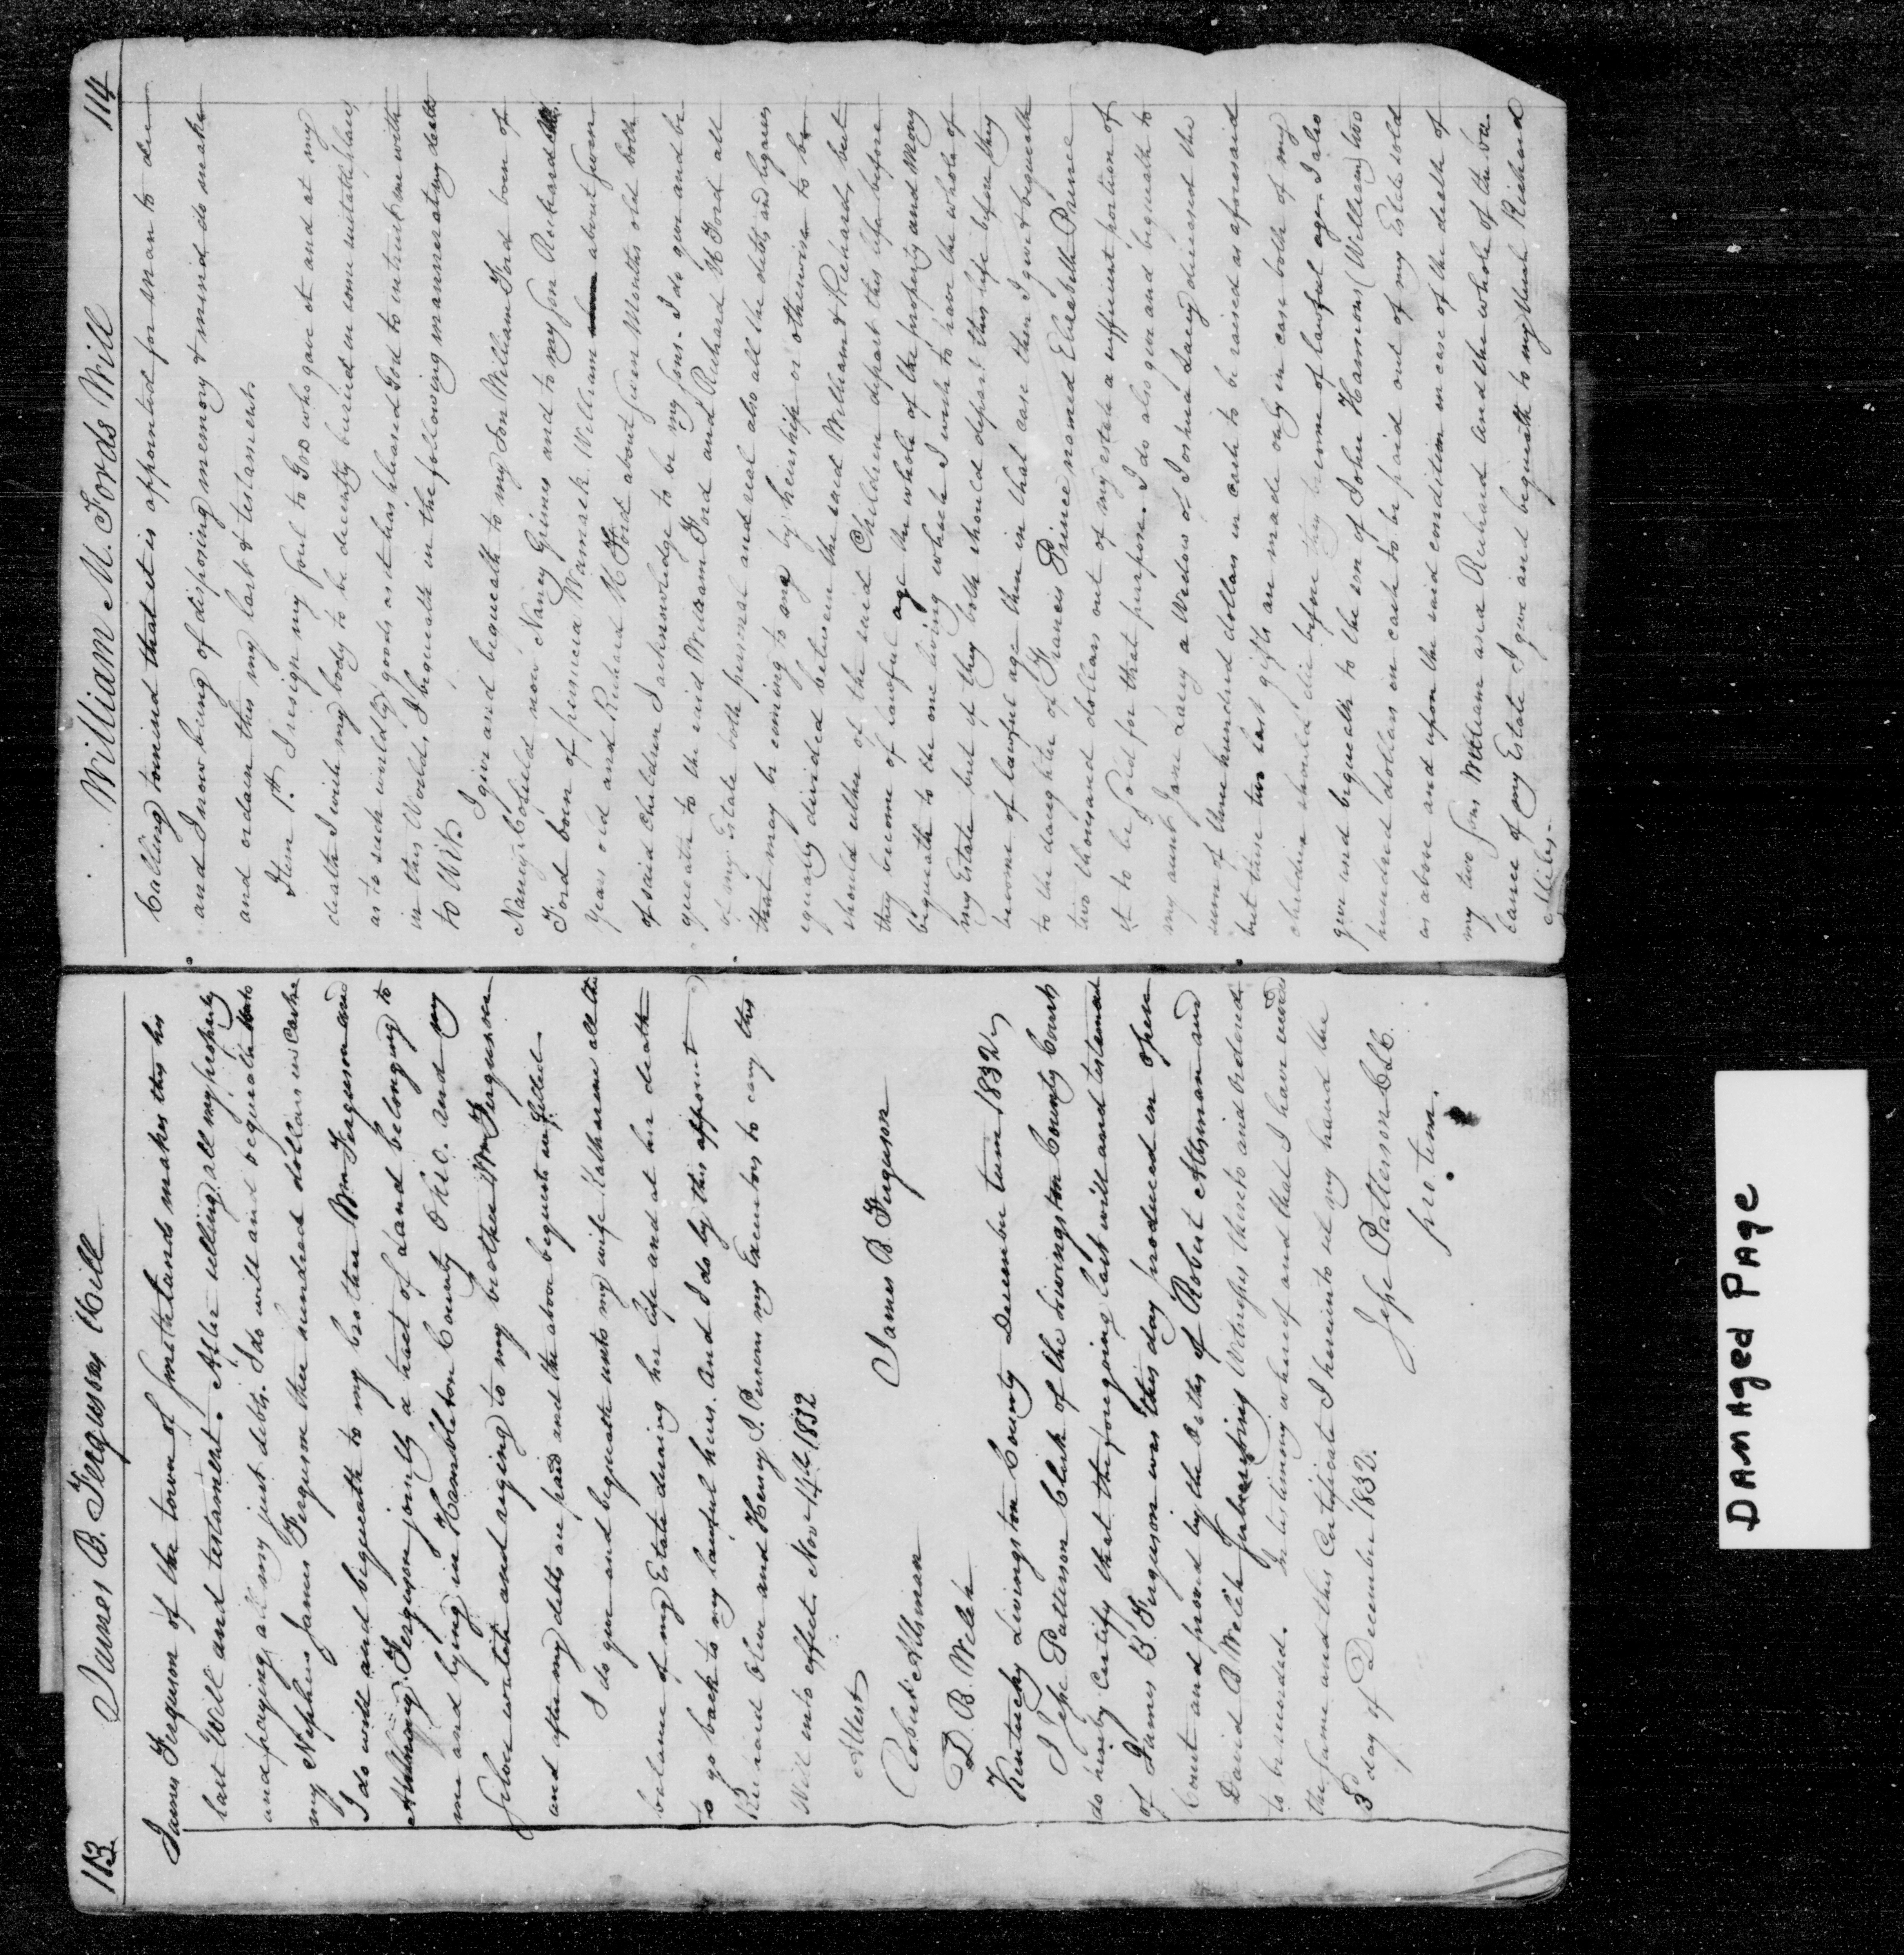 113 James B. Ferguson Will
James Ferguson of the town of Smithland makes this his
last Will and testament. After selling all my property
and paying all my just debts. I do will and bequeathe unto
my Nephew James Ferguson three hundred dollars in Cash
I do will and bequeath to my brother Wm Ferguson and
Ferguson jointly a tract of Land belonging to
me and lying in Hambleton County Ohio. and my
Silver watch and to my brother Wm Ferguson
and after my debts are paid and the above bequests
I do give and bequeath unto my wife Katharine all the
balance of my Estate during her life and at her death
to go back to my lawful heirs. And I do by this appoint
and Henry I. my Executors to cary this
Will into effect Novr 14th 1832
Attest
James B. Ferguson
Robert Altsman
D. B. Welch
Kentucky Livingston County December term 1832
I Jesse Patterson Clerk of the Livingston County Court
do hereby Certify that the foregoing last will and testament
of James B. Ferguson was this day produced in open
Court and proved by the Oaths of Robert Altsman and
David B Welch Subscribing Witnesses thereto and ordered
to be recorded. In testimony whereof and that I have
the same and this Certificate I hereunto set my hand the
3d day of December 1832.
Jesse Patterson Clk.
pro. tem.
William M. Fords Will 114
Calling to mind that it is appointed for man to die
and I now being of disposing memory & mind do make
and ordain this my last & testament.
Item 1st. I resign my Soul to God who gave it and at my
death I wish my body to be decently buried in some suitable place,
as to such worldly goods as it has pleased God to intrust me with
in this World, I bequeath in the following manner at my death
to Wit.
I give and bequeath to my Son William Ford born of
Nancy Cofield now Nancy Grimes and to my Son Richard M.
Ford born of Wamack William about Seven
Years old and Richard M Ford about Seven Months old both
of said children I acknowledge to be my Sons. I do give and be
queath to the said William Ford and Richard M Ford all
of my Estate both personal and real also all the debts, and legacies
that may be coming to me by heirship or otherwise to be
equally divided between the said William & Richard, but
should either of the said Children depart this life before
they become of lawful age the whole of the property and Mony
bequeath to the one living which I wish to have the whole of
my Estate but if they both should depart this life before they
become of lawful age then in that case then I give & bequeath
to the daughter of Francis Prince named Elizabeth Prince
two thousand dollars out of my estate a sufficient portion of
it to be Sold for that purpose. I do also give and bequeath to
my aunt Jane Lacey a Widow of Joshua Lacey deceased the
sum of three hundred dollars in cash to be raised as aforesaid
but these two last gifts are made only in case both of my
children should die before they become of lawful age. I also
give and bequeath to the son of John Harmons (William) two
hundred dollars in cash to be paid out of my Estate sold
as above and upon the said condition in case of the death of
my two Sons William and Richard and the whole of the ba-
lance of my Estate I give and bequeath to my Richard
Miles.
DAMAGED PAGE